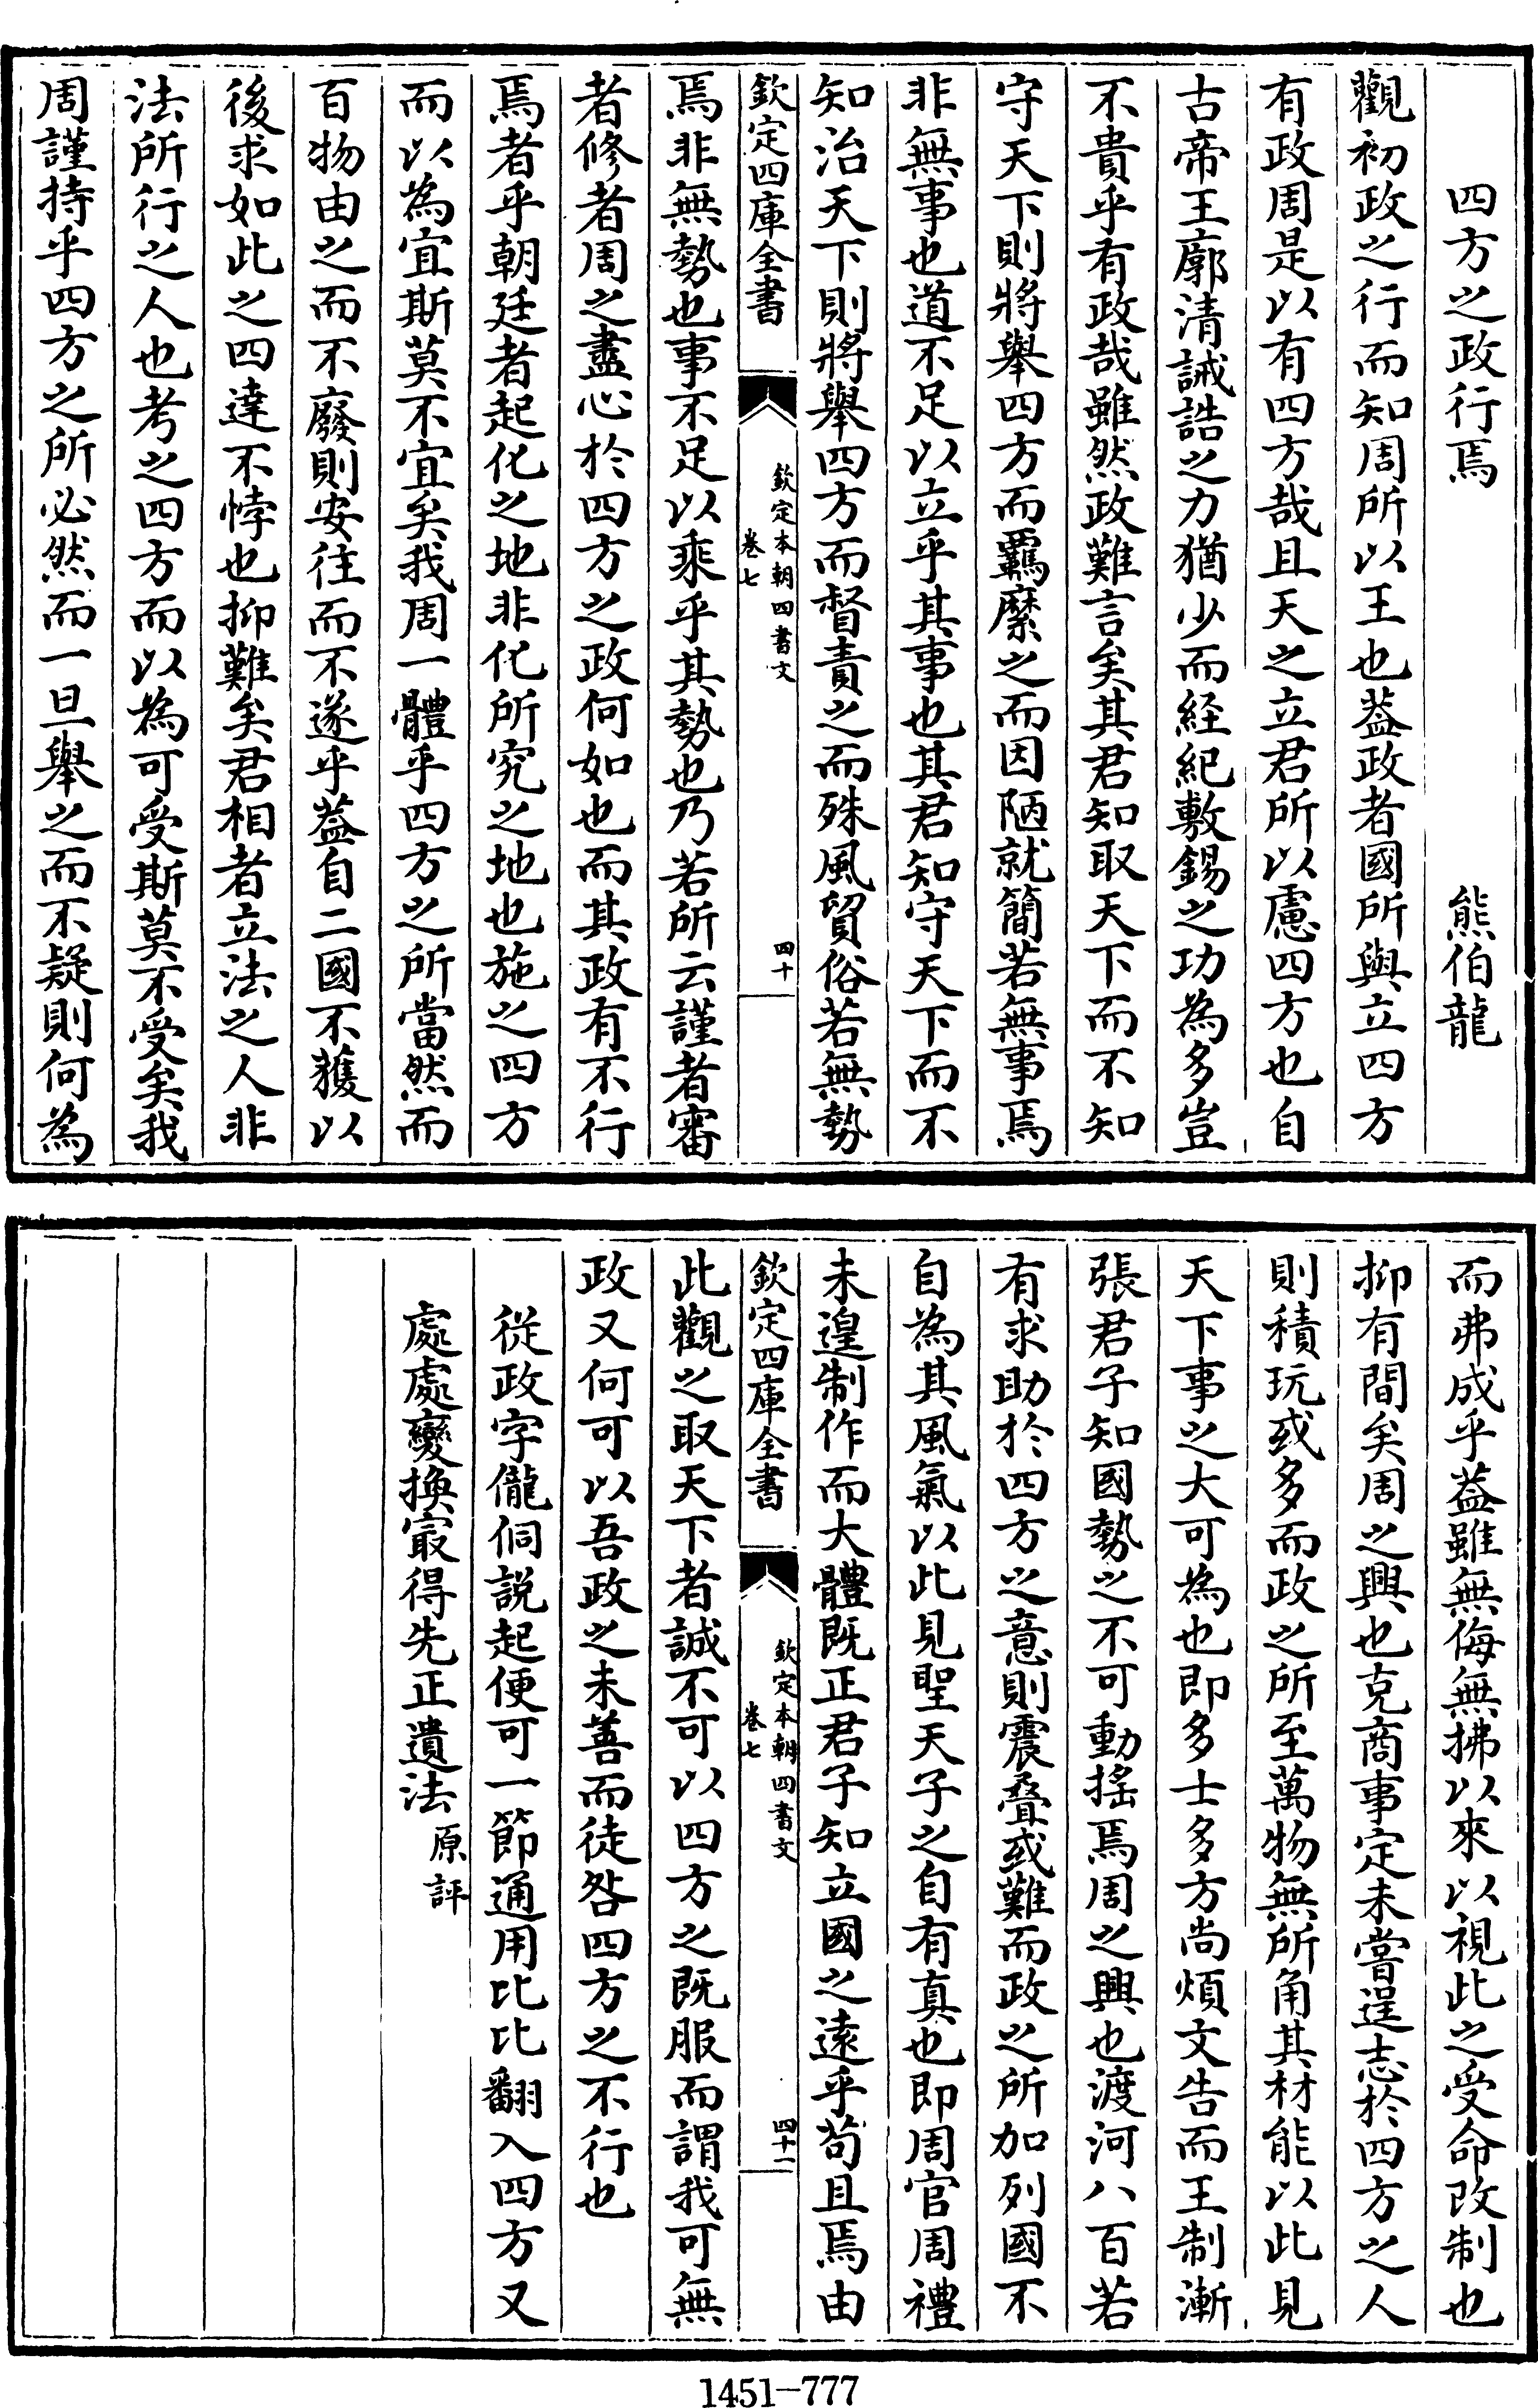 四方之政行焉　熊伯龍
觀初政之行而知周所以王也葢政者國所與立四方
有政周是以有四方哉且天之立君所以慮四方也自
古帝王廓清誡誥之力猶少而經紀敷錫之功為多豈
不貴乎有政哉雖然政難言矣其君知取天下而不知
守天下則將舉四方而羈縻之而因陋就簡若無事焉
非無事也道不足以立乎其事也其君知守天下而不
知治天下則將舉四方而督責之而殊風貿俗若無勢
欽定四庫全書
欽定本朝四書文
卷七
四十
焉非無勢也事不足以乘乎其勢也乃若所云謹者審
者修者周之盡心於四方之政何如也而其政有不行
焉者乎朝廷者起化之地非化所究之地也施之四方
而以為宜斯莫不宜矣我周一體乎四方之所當然而
百物由之而不廢則安往而不遂乎葢自二國不獲以
後求如此之四達不悖也抑難矣君相者立法之人非
法所行之人也考之四方而以為可受斯莫不受矣我
周謹持乎四方之所必然而一旦舉之而不疑則何為
而弗成乎葢雖無侮無拂以來以視此之受命改制也
抑有間矣周之興也克商事定未嘗逞志於四方之人
則積玩或多而政之所至萬物無所角其材能以此見
天下事之大可為也即多士多方尚煩文告而王制漸
張君子知國勢之不可動搖焉周之興也渡河八百若
有求助於四方之意則震疊或難而政之所加列國不
自為其風氣以此見聖天子之自有真也即周官周禮
未遑制作而大體既正君子知立國之遠乎苟且焉由
欽定四庫全書
欽定本朝四書文
卷七
四十一
此觀之取天下者誠不可以四方之既服而謂我可無
政又何可以吾政之未善而徒咎四方之不行也
從政字儱侗説起便可一節通用比比翻入四方又
處處變換㝡得先正遺法原評
1451-777